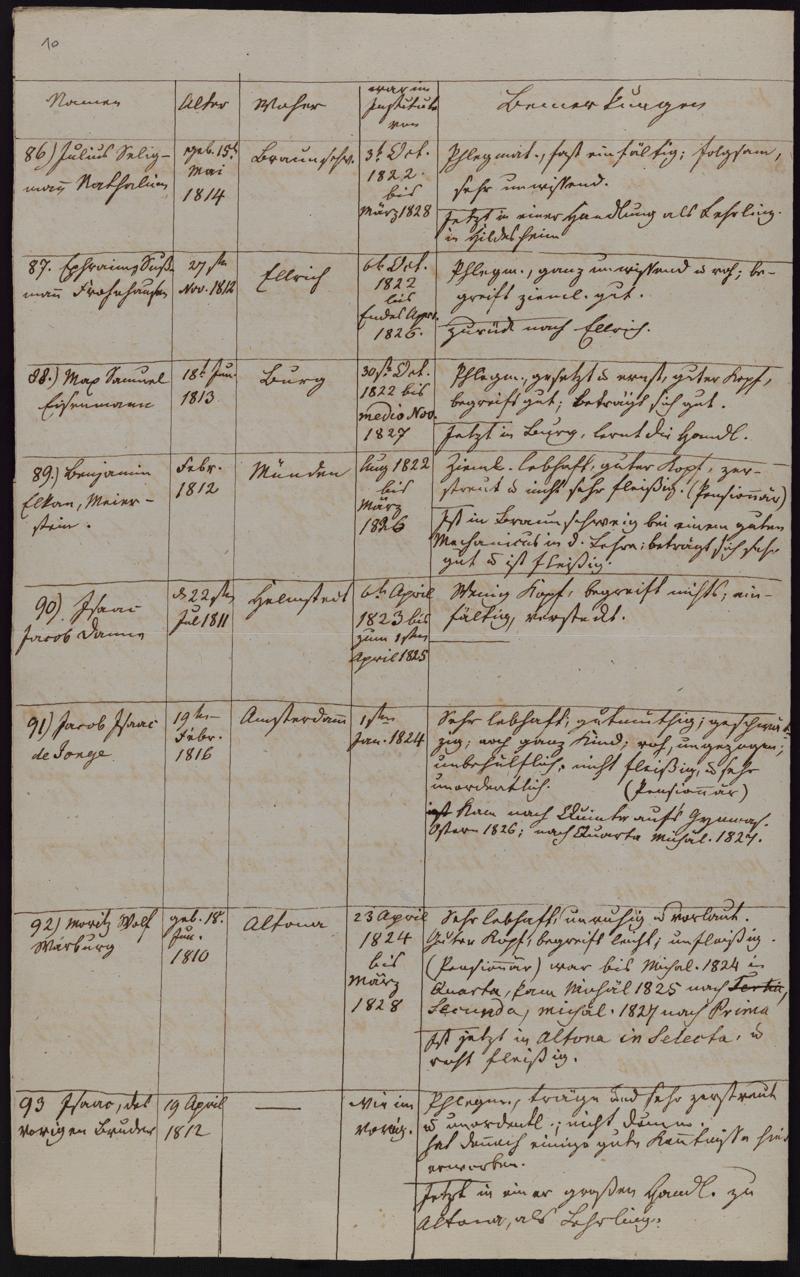 10
Namen
Alter
Woher
war im
Institute
von
Bemerkungen
86) Julius Selig-
mann Nathalion
geb. 15t
Mai
1814
Braunschw.
3t Oct.
1822.
bis
März 1828
Phlegmat., fast einfältig; folgsam,
sehr unwissend.
Jetzt in einer Handlung als Lehrling
in Hildesheim
87. Ephraim Süß-
mann Frohnhausen
27sten
Nov. 1812
Ellrich
6t Oct.
1822
bis
Ende Apr.
1826.
Phlegm., ganz unwissend u roh; be-
greift zieml. gut.
zurück nach Ellrich.
88.) Max Samuel
Eisenmann
18t Jun.
1813
Burg
30st Oct.
1822 bis
medio Nov.
1827
Phlegm., gesetzt u ernst, guter Kopf,
begreift gut; beträgt sich gut.
Jetzt in Burg, lernt die Handl.
89.) Benjamin
Elkan, Meier-
stein.
Febr.
1812
Münden
Aug 1822
bis
März
1826
Zieml. lebhaft, guter Kopf, zer-
streut u nicht sehr fleißig. (Pensionnär)
Ist in Braunschweig bei einem guten
Mechanicus in d. Lehre; beträgt sich sehr
gut u ist fleißig.
90). Isaac
Jacob Damm
d 22sten
Jul 1811
Helmstedt
6t April
1823 bis
zum 1sten
April 1825
Wenig Kopf, begreift nichts; ein-
fältig, versteckt.
91) Jacob Isaac
de Jonge
19ten
Febr.
1816
Amsterdam
1sten
Jan. 1824
Sehr lebhaft; gutmüthig; geschwät-
zig; noch ganz Kind; roh, ungezogen;
unbehülflich, nicht fleißig, u sehr
unordentlich. (Pensionnär)
Kam nach Quinta aufs Gymnas.
Ostern 1826; nach Quarta Michäl. 1827.
92) Moritz Wolf
Warburg
geb. 18.
Jun.
1810
Altona
23 April
1824
bis
März
1828
Sehr lebhaft, unruhig u vorlaut.
Guter Kopf, begreift leicht; unfleißig.
(Pensionnär) war bis Michal. 1824 in
Quarta, kam Michäl 1825 nach Tertia,
Secunda, Michäl. 1827 nach Prima
Ist jetzt in Altona in Selecta, u
recht fleißig.
93 Isaac, des
vorigen Bruder
19 April
1812
—
Wie im
vorig.
Phlegm., träge und sehr zerstreut
u unordentl.; nicht dumm.
hat dennoch einige gute Kenntnisse hier
erworben.
Jetzt in einer großen Handl. zu
Altona, als Lehrling.